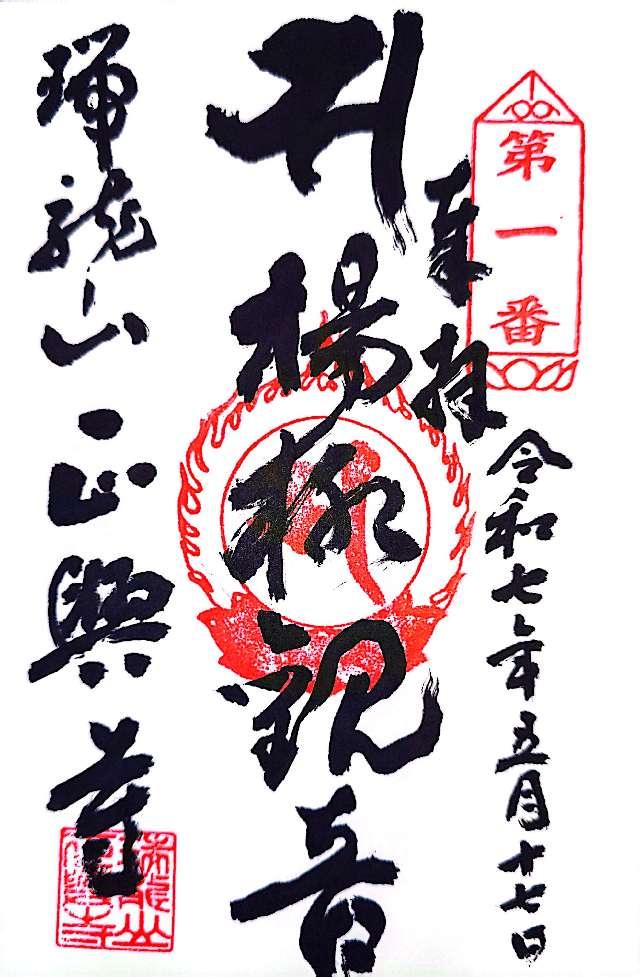 第一番
奉拝
令和七年五月十七日
楊柳観音
瑞龍山正興寺